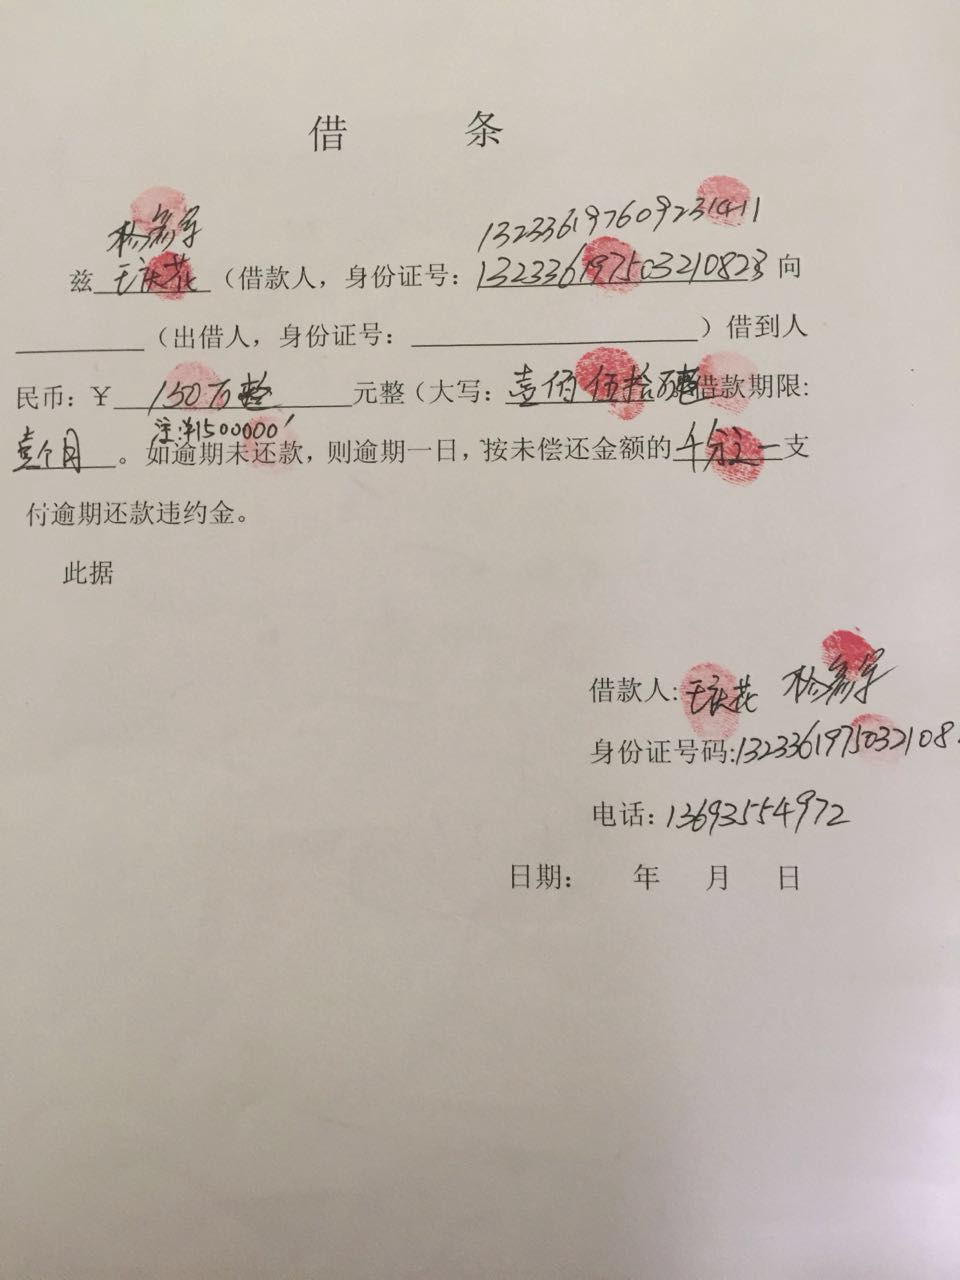 借 条
杨彦军 132336197609231411
兹王庆花(借款人，身份证号：132336197503210823向
(出借人，身份证号：)借到人
民币：￥150万整元整(大写：壹佰伍拾万整借款期限:
注:¥1500000'
壹个月。如逾期未还款，则逾期一日，按未偿还金额的千分之一支
付逾期还款违约金。
此据
借款人:王庆花 杨彦军
身份证号码:13233619750321082
电话：13693554972
日期： 年 月 日